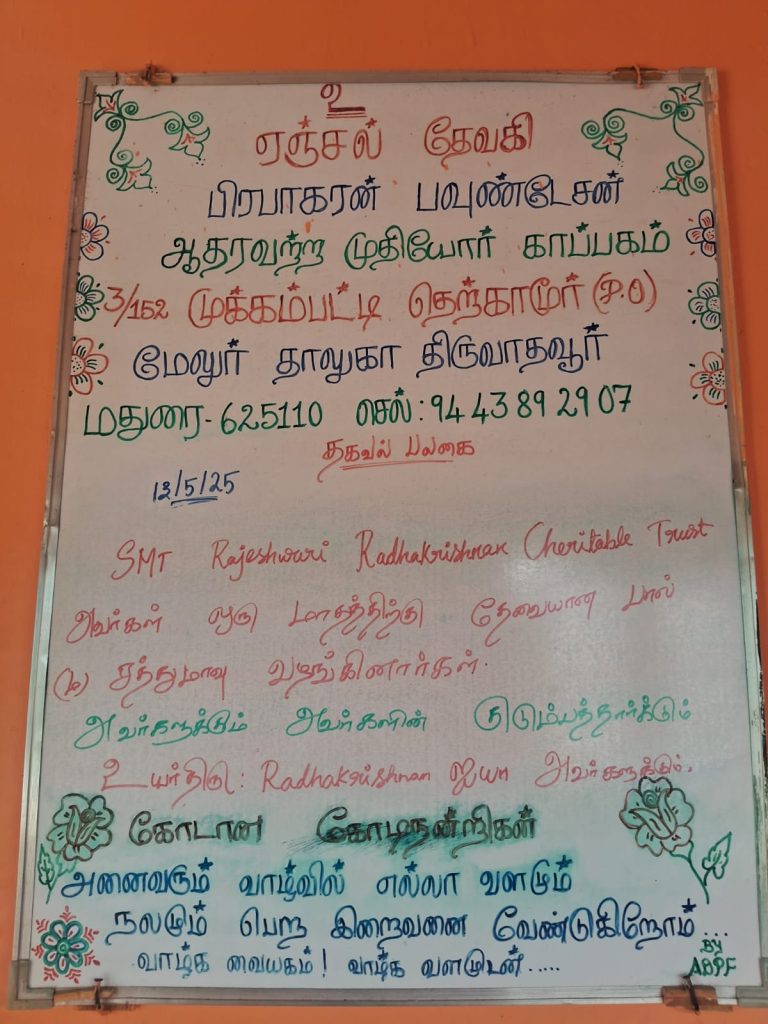 உ
ஏஞ்சல் தேவகி
பிரபாகரன் பவுண்டேசன்
ஆதரவற்ற முதியோர் காப்பகம்
3/152 முக்கம்பட்டி தெற்காமூர் (P.O)
மேலூர் தாலுகா திருவாதவூர்
மதுரை-625110 செல்: 94 43 89 29 07
தகவல் பலகை
12/5/25
SMT Rajeshwari Radhakrishnan Cheritable Trust
அவர்கள் ஒரு மாசத்திற்கு தேவையான பால்
(ம) சத்துமாவு வழங்கினார்கள்.
அவர்களுக்கும் அவர்களின் குடும்பத்தார்க்கும்
உயர்திரு: Radhakrishnan ஐயா அவர்களுக்கும்.
கோடான கோடிநன்றிகள்
அனைவரும் வாழ்வில் எல்லா வளமும்
நலமும் பெற இறைவனை வேண்டுகிறோம்...
வாழ்க வையகம்! வாழ்க வளமுடன்.....
BY
ABPF